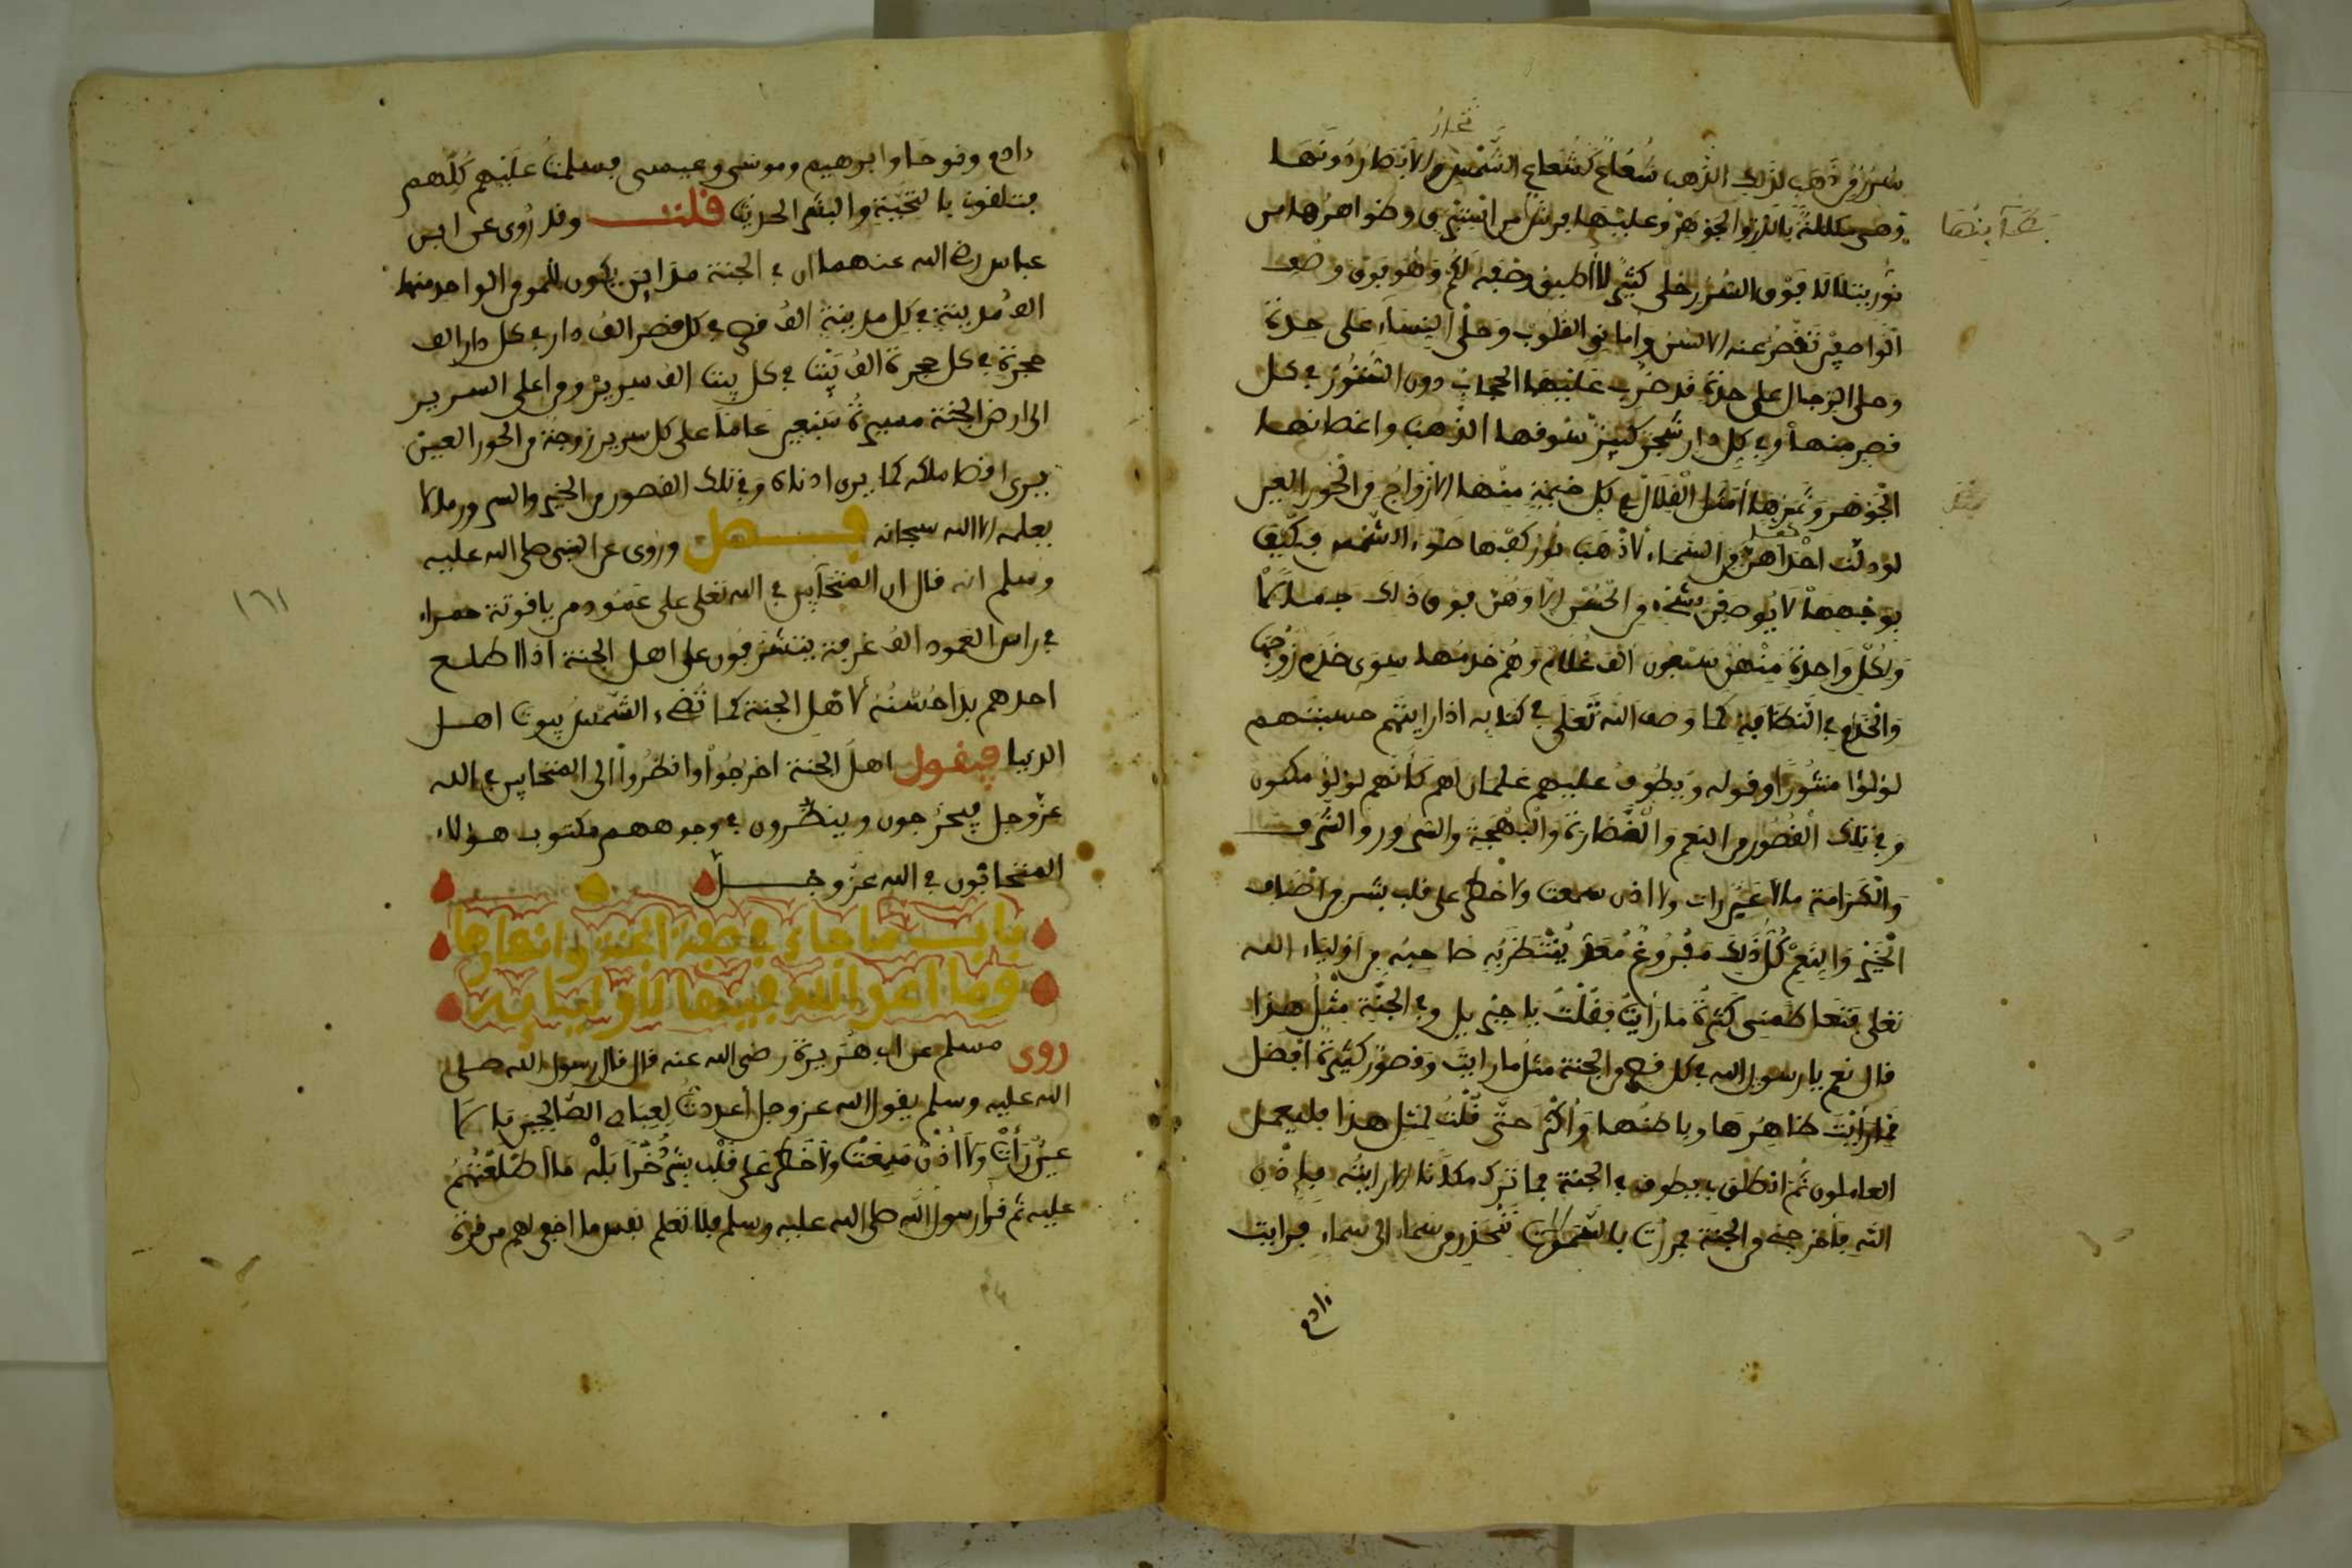 سرر من ذهب لذلك الذهب شعاع كشعاع الشمس تحار الابصار دونها
وهي مكللة بالدر والجوهر وعليها فرش من استبرق وظواهرها من
بطآينها
نور يتلالا فوق السرر حلي كثير لا أطيق وصفه لكم وهو فوق وصف
الواصفين تقصر عنه الالسن واماني القلوب وحلي النساء على حدة
وحلي الرجال على حدة قد ضرب عليها الحجاب دون الستور في كل
قصر منها وفي كل دار شجر كثير سوقها الذهب واغصانها
الجوهر وثمرها امثل القلال في كل خيمة منها الازواج من الحور العين
لو دلت احداهن كفها من السماء لأذهب نور كفها ضوء الشمس فكيف
بوجهها لا يوصفن بشيء من الحسن الا وهن فوق ذلك جمالا كما
ولكل واحدة منهن سبعون الف غلام وهم خدمها سوى خدم زوجها
والخدم في النظافة كما وصف الله تعلى في كتابه اذا رايتهم حسبتهم
لؤلؤا منثورا وقوله ويطوف عليهم غلمان لهم كأنهم لؤلؤ مكنون
وفي تلك القصور من النعم والغضارة والبهجة والسرور والشرف
والكرامة ما لا عين رات ولا اذن سمعت ولا خطر على قلب بشر من اصناف
الخير والنعم كل ذلك مفروغ معد ينتظر به صاحبه من اولياء الله
تعلى فتعاظمني كثرة ما رأيت فقلت يا جبريل وفي الجنة مثل هذا
قال نعم يا رسول الله في كل قصر من الجنة مثل ما رايت وقصور كثيرة افضل
مما رأيت ظاهرها وباطنها وأكثر حتى قلت لمثل هذا فليعمل
العاملون ثم انطلق بي يطوف في الجنة فما ترك مكانا الا رايته بإذن
الله فأخرجني من الجنة فمررت بالسموات تنحدر من سماء الى سماء فرايت
ءادم
ءادم ونوحا وابرهيم وموسى وعيسى فسلمت عليهم كلهم
فتلقوني بالتحية والبشر الحديث قلت وقد روى عن ابن
عباس رضي الله عنهما ان في الجنة مداين يكون للمومن الواحد منها
الف مدينة في كل مدينة الف قصر في كل قصر الف دار في كل دار الف
حجرة في كل حجرة الف بيت في كل بيت الف سرير ومن اعلى السرير
الى ارض الجنة مسيرة سبعين عاما على كل سرير زوجة من الحور العين
يرى اقصا ملكه كما يرى ادناه وفي تلك القصور من الخير والسرور ما لا
يعلمه الا الله سبحانه فصل وروى عن النبي صلى الله عليه
وسلم انه قال ان المتحابين في الله تعلى على عمود من ياقوتة حمراء
١٦١
في راس العمود الف غرفة يتشرفون على اهل الجنة اذا اطلع
احدهم بدا حسنه لأهل الجنة كما تضيء الشمس بيوت اهل
الدنيا فيقول اهل الجنة اخرجوا وانظروا الى المتحابين في الله
عز وجل فيخرجون وينظرون في وجوههم مكتوب هؤلاء
المتحابون في الله عز وجل
باب ما جاء في صفة الجنة وانهارها
وما اعد الله فيها لأوليايه
روى مسلم عن ابي هريرة رضي الله عنه قال قال رسول الله صلى
الله عليه وسلم يقول الله عز وجل أعددت لعبادي الصالحين ما لا
عين رأت ولا أذن سمعت ولا خطر على قلب بشر ذخرا بله ما اطلعتهم
عليه ثم قرا رسول الله صلى الله عليه وسلم فلا تعلم نفس ما اخفي لهم من قرة